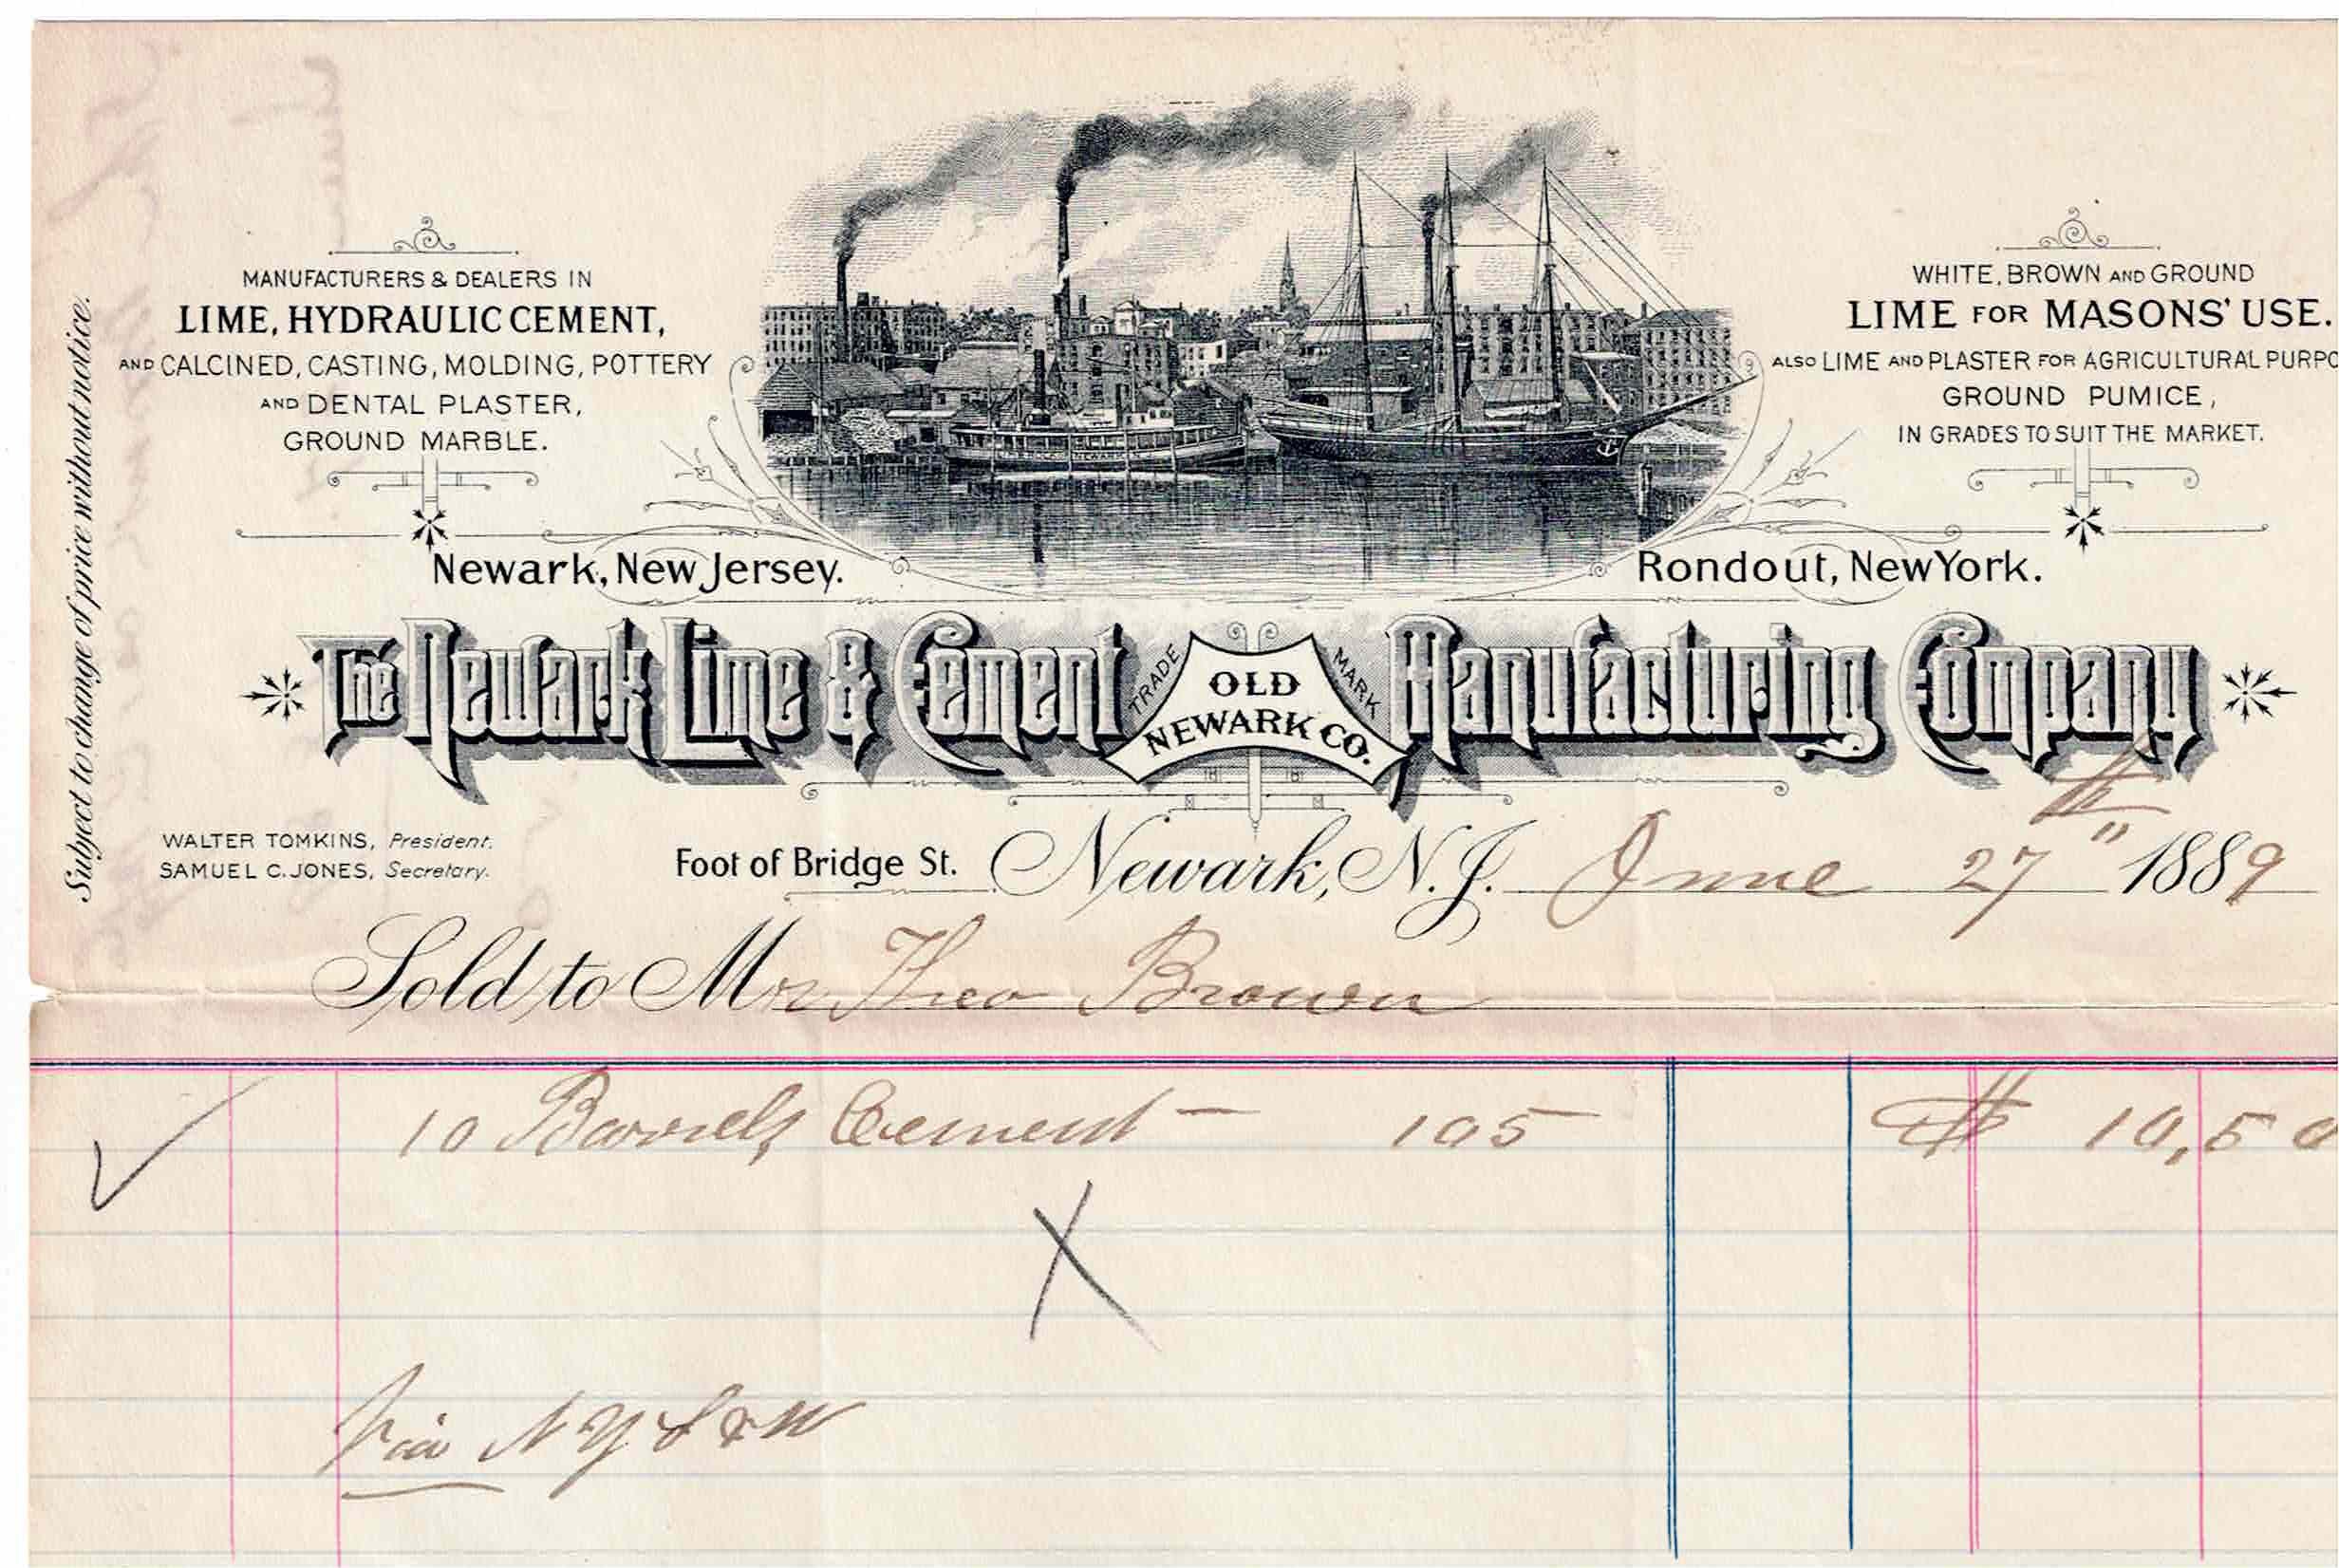 MANUFACTURERS & DEALERS IN
LIME, HYDRAULIC CEMENT,
AND CALCINED, CASTING, MOLDING, POTTERY
AND DENTAL PLASTER,
GROUND MARBLE.
WHITE, BROWN AND GROUND
LIME FOR MASONS' USE.
ALSO LIME AND PLASTER FOR AGRICULTURAL PURPO
GROUND PUMICE,
IN GRADES TO SUIT THE MARKET.
Subject to change of price without notice.
Newark, New Jersey.
Rondout, New York.
The Newark Lime & Cement Manufacturing Company
TRADE MARK
OLD
NEWARK CO.
WALTER TOMKINS, President.
SAMUEL C. JONES, Secretary.
Foot of Bridge St. Newark, N.J. June 27th 1889
Sold to Mr Theo Brown
10 Barrels Cement — 105 $ 10,50
Via N Y S & W